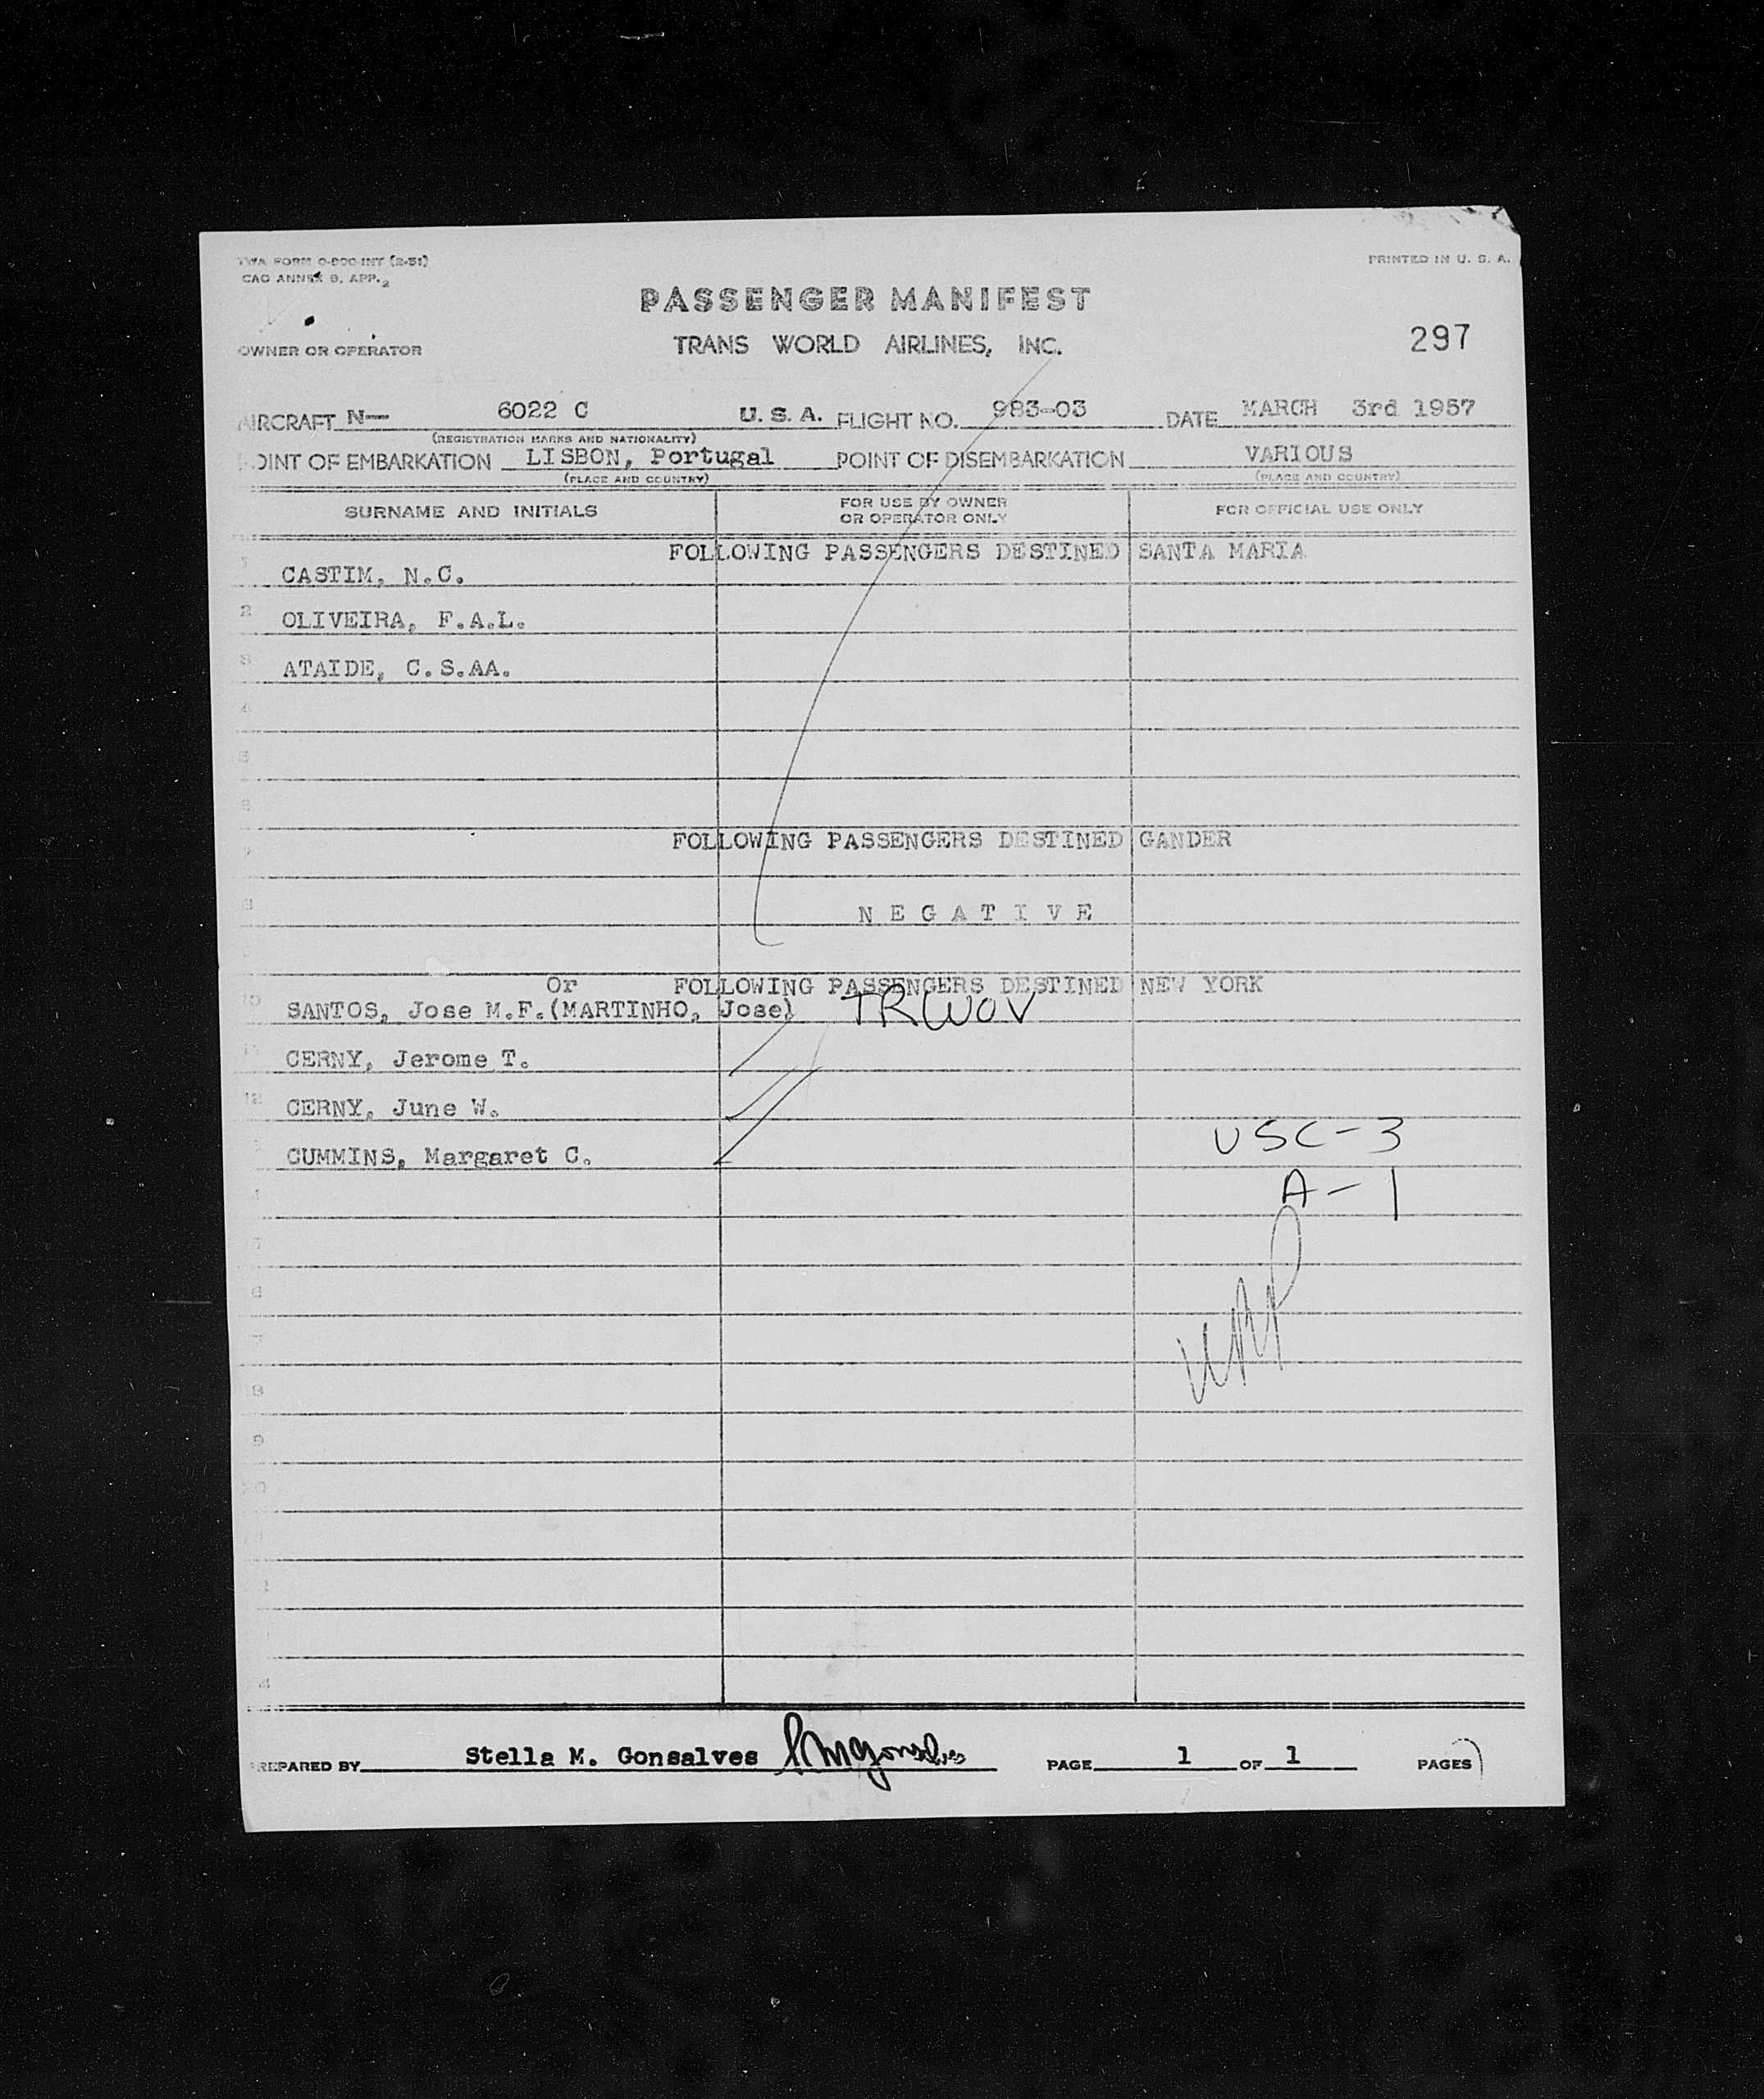 TWA FORM O-800-INT (2-51)
CAO ANNEX 9, APP. 2
PRINTED IN U. S. A.
PASSENGER MANIFEST
OWNER OR OPERATOR TRANS WORLD AIRLINES, INC. 297
AIRCRAFT N— 6022 C U. S. A. FLIGHT NO. 983-03 DATE MARCH 3rd 1957
(REGISTRATION MARKS AND NATIONALITY)
OINT OF EMBARKATION LISBON, Portugal POINT OF DISEMBARKATION VARIOUS
(PLACE AND COUNTRY) (PLACE AND COUNTRY)
SURNAME AND INITIALS FOR USE BY OWNER OR OPERATOR ONLY FOR OFFICIAL USE ONLY
FOLLOWING PASSENGERS DESTINED SANTA MARIA
1 CASTIM, N.C.
2 OLIVEIRA, F.A.L.
3 ATAIDE, C.S.AA.
4
5
6
FOLLOWING PASSENGERS DESTINED GANDER
7
8 N E G A T I V E
Or FOLLOWING PASSENGERS DESTINED NEW YORK
10 SANTOS, Jose M.F.(MARTINHO, Jose) TRWOV
11 CERNY, Jerome T.
12 CERNY, June W.
3 CUMMINS, Margaret C. USC-3
A-1
6
7
8
9
4
PREPARED BY Stella M. Gonsalves SMGonsalves PAGE 1 OF 1 PAGES